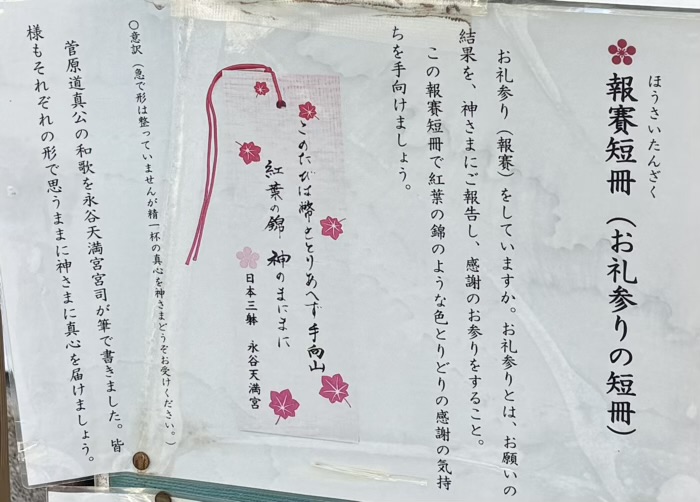 ほうさいたんざく
報賽短冊（お礼参りの短冊）
お礼参り（報賽）をしていますか。お礼参りとは、お願いの
結果を、神さまにご報告し、感謝のお参りをすること。
この報賽短冊で紅葉の錦のような色とりどりの感謝の気持
ちを手向けましょう。
このたびは幣もとりあへず手向山
紅葉の錦 神のまにまに
日本三躰 永谷天満宮
〇意訳（急で形は整っていませんが精一杯の真心を神さまどうぞお受けください。）
菅原道真公の和歌を永谷天満宮宮司が筆で書きました。皆
様もそれぞれの形で思うままに神さまに真心を届けましょう。